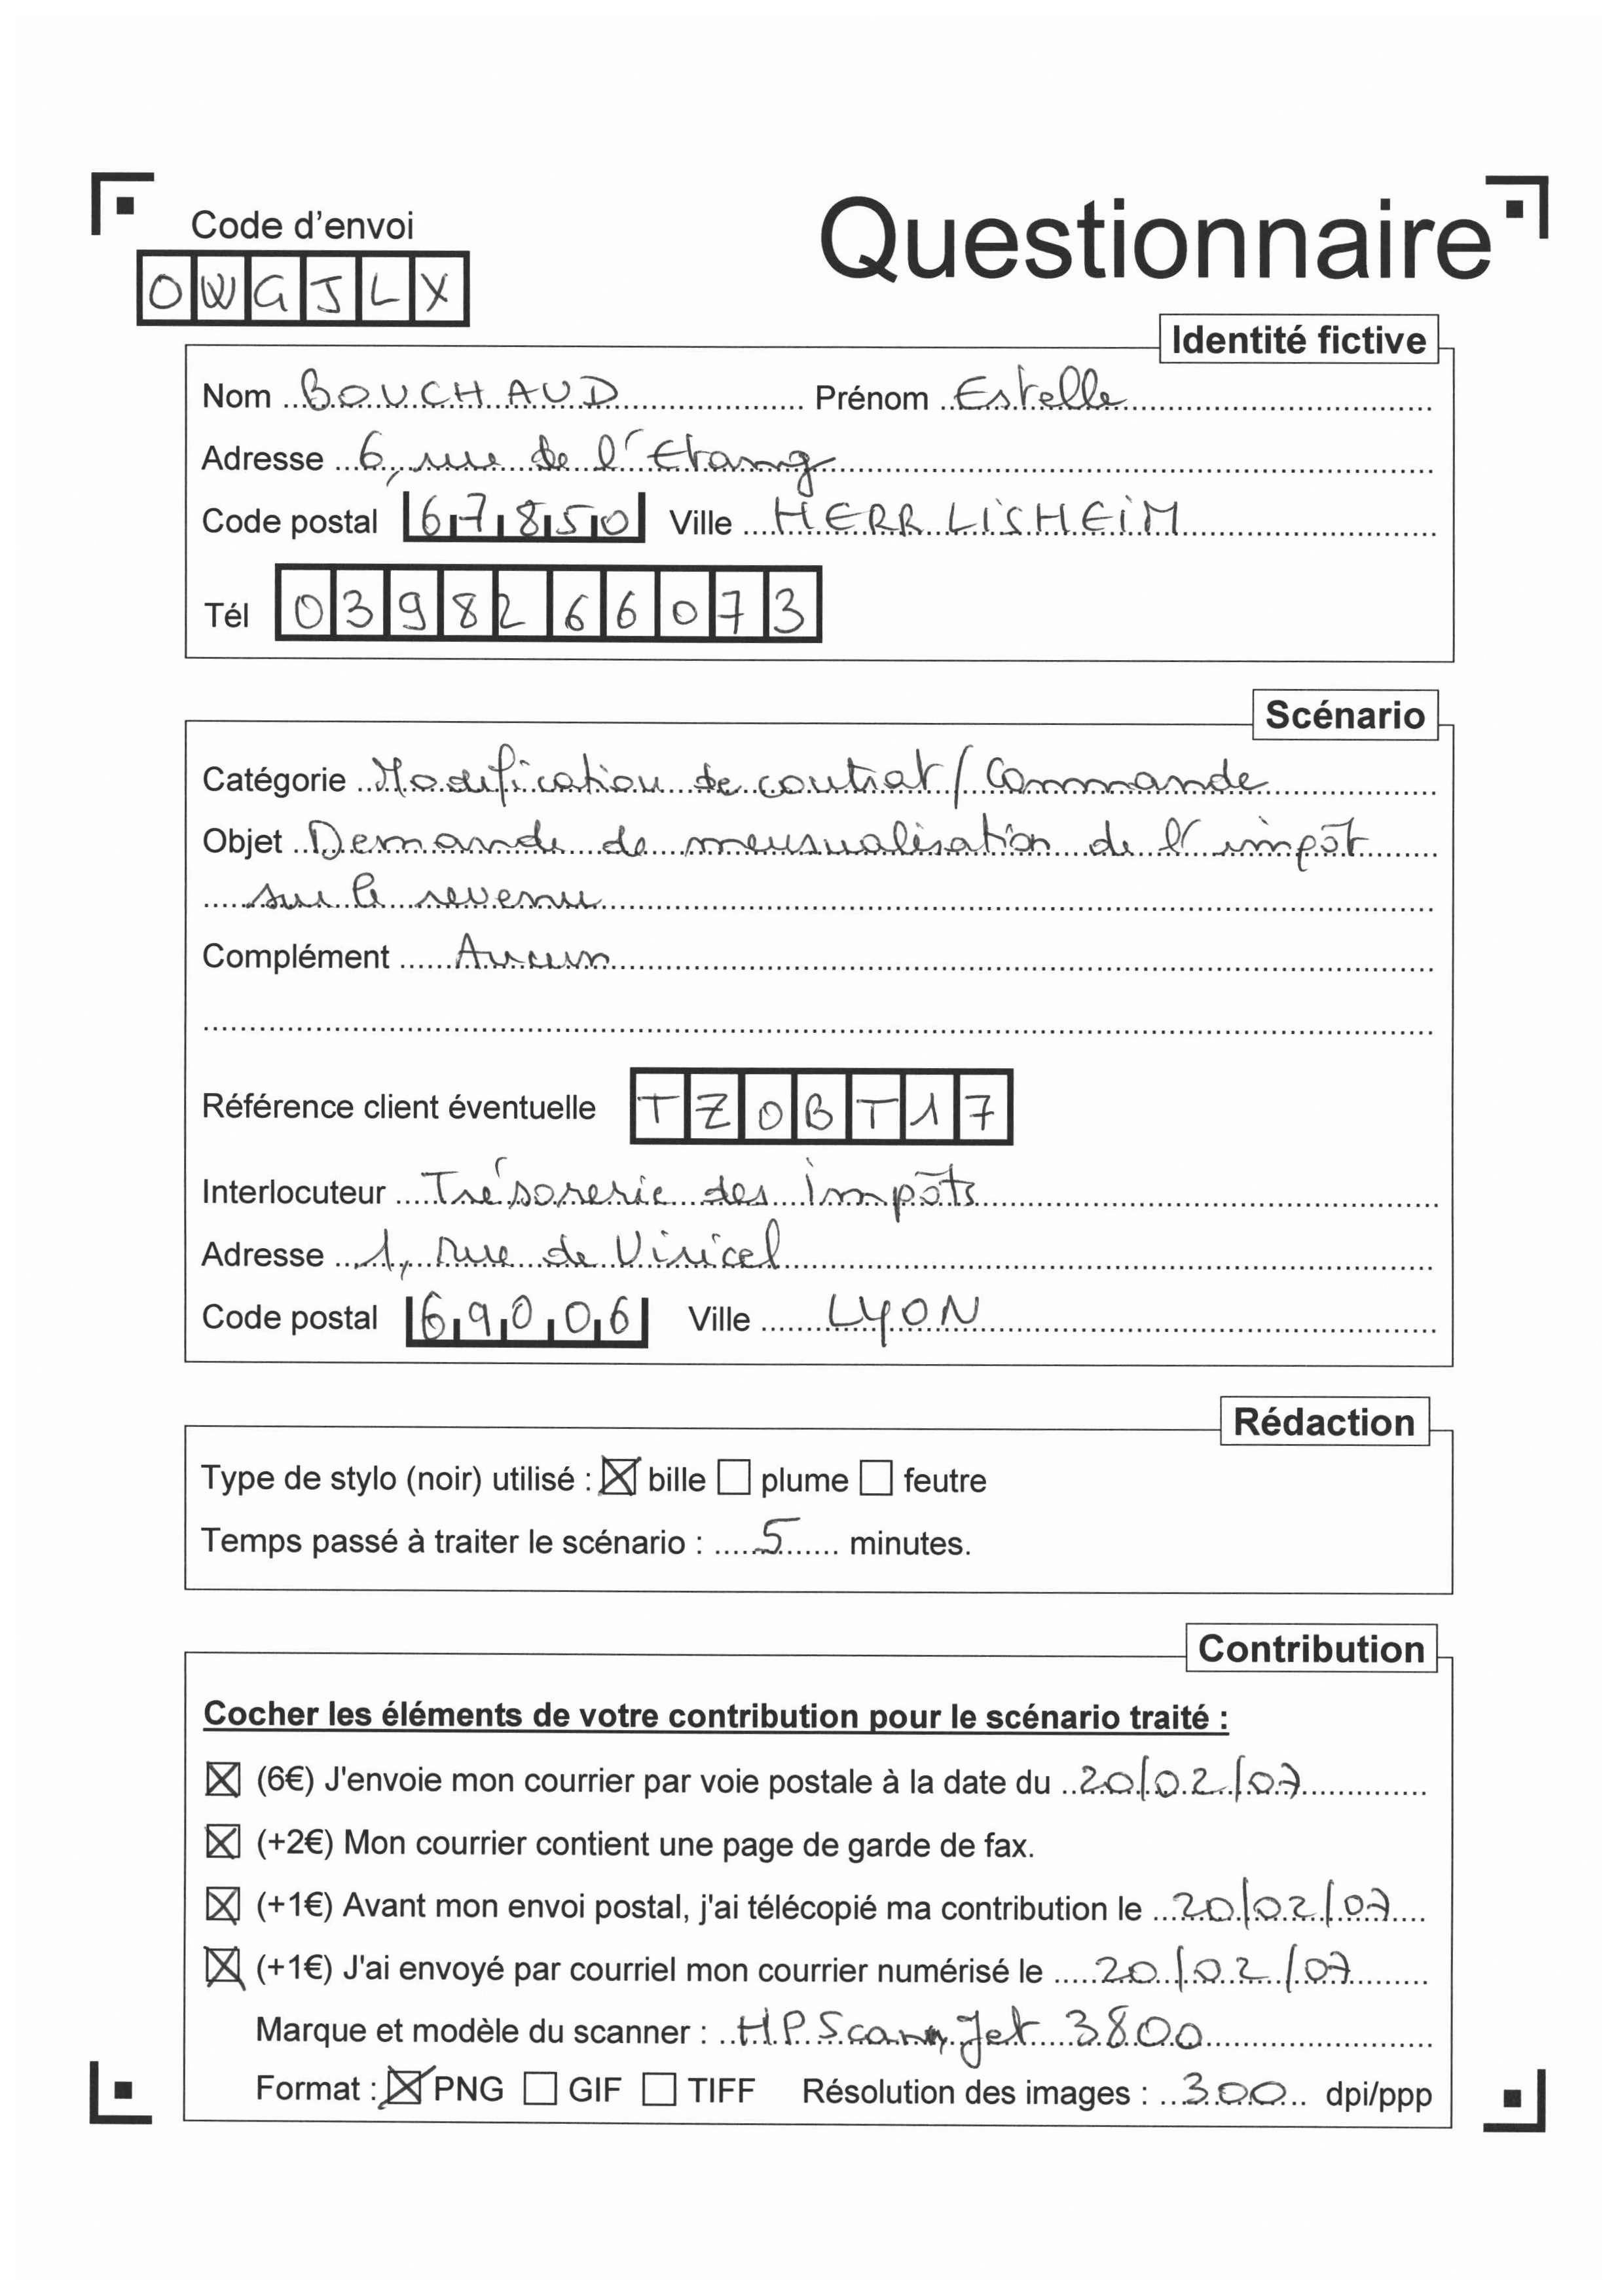 Code d'envoi
Questionnaire
OWGJLX
Identité fictive
Nom BOUCHAUD Prénom Estelle
Adresse 6, rue de l'Etang
Code postal 67850 Ville HERRLISHEIM
Tél 0398266073
Scénario
Catégorie Modification de contrat / Commande
Objet Demande de mensualisation de l'impôt
sur le revenu
Complément Aucun
Référence client éventuelle TZOBT17
Interlocuteur Trésorerie des Impôts
Adresse 1, rue de Viricel
Code postal 69006 Ville LYON
Rédaction
Type de stylo (noir) utilisé : ☒ bille ☐ plume ☐ feutre
Temps passé à traiter le scénario : 5 minutes.
Contribution
Cocher les éléments de votre contribution pour le scénario traité :
☒ (6€) J'envoie mon courrier par voie postale à la date du 20/02/07
☒ (+2€) Mon courrier contient une page de garde de fax.
☒ (+1€) Avant mon envoi postal, j'ai télécopié ma contribution le 20/02/07
☒ (+1€) J'ai envoyé par courriel mon courrier numérisé le 20/02/07
Marque et modèle du scanner : HP Scanjet 3800
Format : ☒ PNG ☐ GIF ☐ TIFF Résolution des images : 300 dpi/ppp